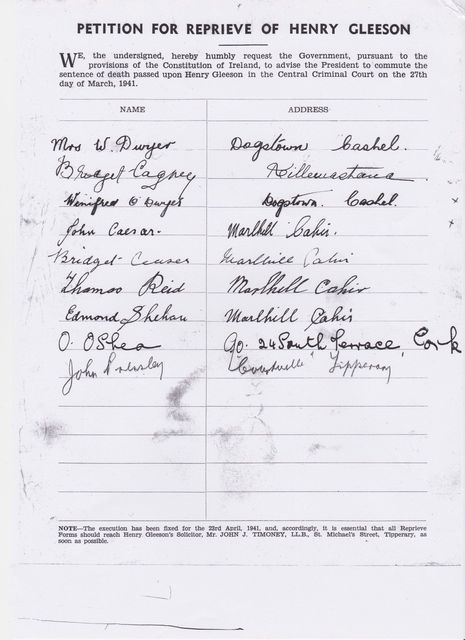 PETITION FOR REPRIEVE OF HENRY GLEESON
WE, the undersigned, hereby humbly request the Government, pursuant to the
provisions of the Constitution of Ireland, to advise the President to commute the
sentence of death passed upon Henry Gleeson in the Central Criminal Court on the 27th
day of March, 1941.
NAME ADDRESS
Mrs W. Dwyer Dogstown Cashel.
Bridget Cagney
Winifred O Dwyer Dogstown. Cashel.
John Caesar. Marlhill Cahir.
Bridget Ceaser Marlhill Cahir
Thomas Reid Marlhill Cahir
Edmond Shehan Marlhill Cahir
O. O'Shea C/o. 24 South Terrace, Cork
John Tipperary
NOTE—The execution has been fixed for the 23rd April, 1941, and, accordingly, it is essential that all Reprieve
Forms should reach Henry Gleeson's Solicitor, Mr. JOHN J. TIMONEY, LL.B., St. Michael's Street, Tipperary, as
soon as possible.